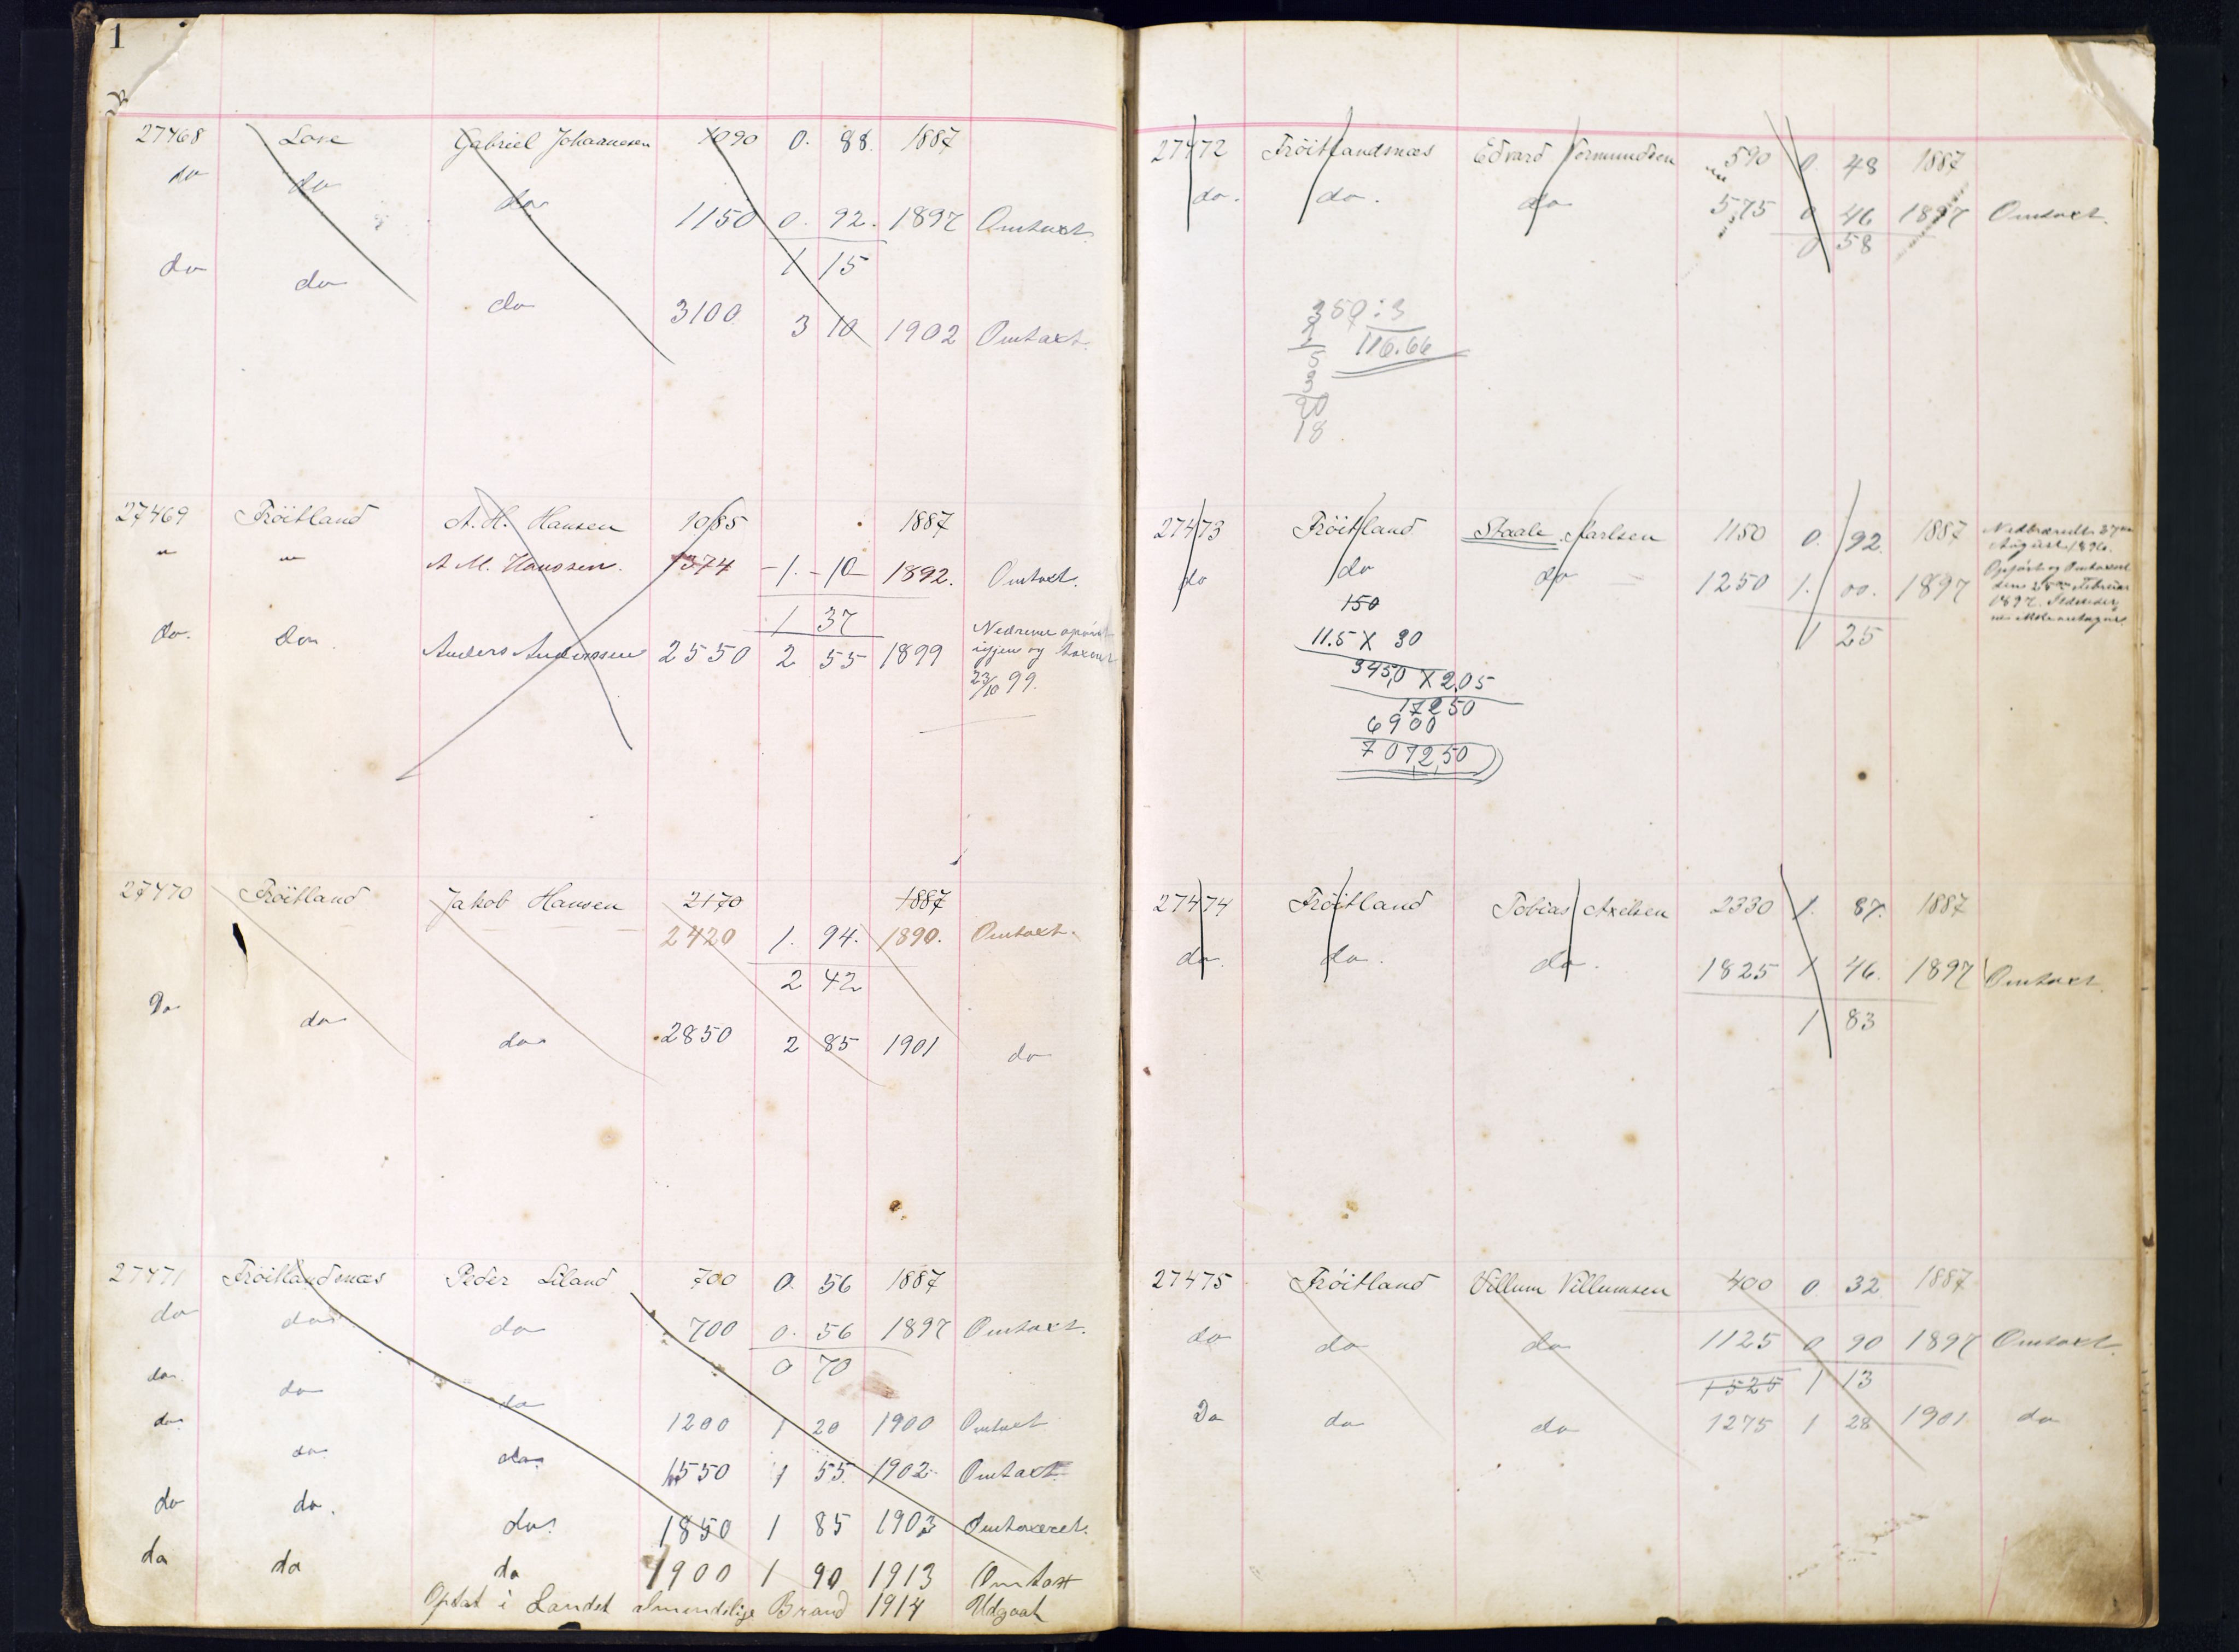 1
27468 Love Gabriel Johannesen 1090 0. 88. 1887
do do do 1150 0. 92. 1897 Omtaxt.
1 15
do do do 3100 3 10 1902 Omtaxt.
27469 Fröitland A. H. Hansen 1085 1887
" " A M. Hanssen. 1374 -1.-10 1892. Omtaxt.
1 37
do. do. Anders Anderssen 2550 2 55 1899 Nedrevne
igjen og
23/10 99.
27470 Fröitland Jakob Hansen 2170 1887
2420 1. 94. 1890. Omtaxt.
2 42
Do do do 2850 2 85 1901 do
27471 Fröitlandsnæs Peder Liland 700 0. 56 1887
do do do 700 0. 56 1897 Omtaxt.
0 70
do do do 1200 1 20 1900 Omtaxt
do do do. 1550 1 55. 1902 Omtaxt
do do. do. 1850 1 85 1903 Omtaxeret.
da da da 1900 1 90 1913 Omtaxt
Optat i Landet almindelige Brand 1914 Udgaat
27472 Fröitlandsnæs Edvard Tormundsen 590 0. 48 1887
do. do. do 575 0 46 1897 Omtaxt.
0 58
350:3
3 116.66
5
3
20
18
27473 Fröitland Staale Karlsen 1150 0. 92. 1887 Nedbrændt 27de
August 1896.
do do do 1250 1. 00. 1897 Opført og Omtaxert
den 25de Februar
1897.
1 25
150
11.5 X 30
345,0 X 2,05
17250
6900
7072,50
27474 Fröitland Tobias Axelsen 2330 1. 87. 1887
do. do. do. 1825 1 46. 1897 Omtaxt.
1 83
27475 Fröitland Villum Villumsen 400 0 32 1887
do do do 1125 0 90 1897 Omtaxt.
1525 1 13
Do do do 1275 1 28 1901 do